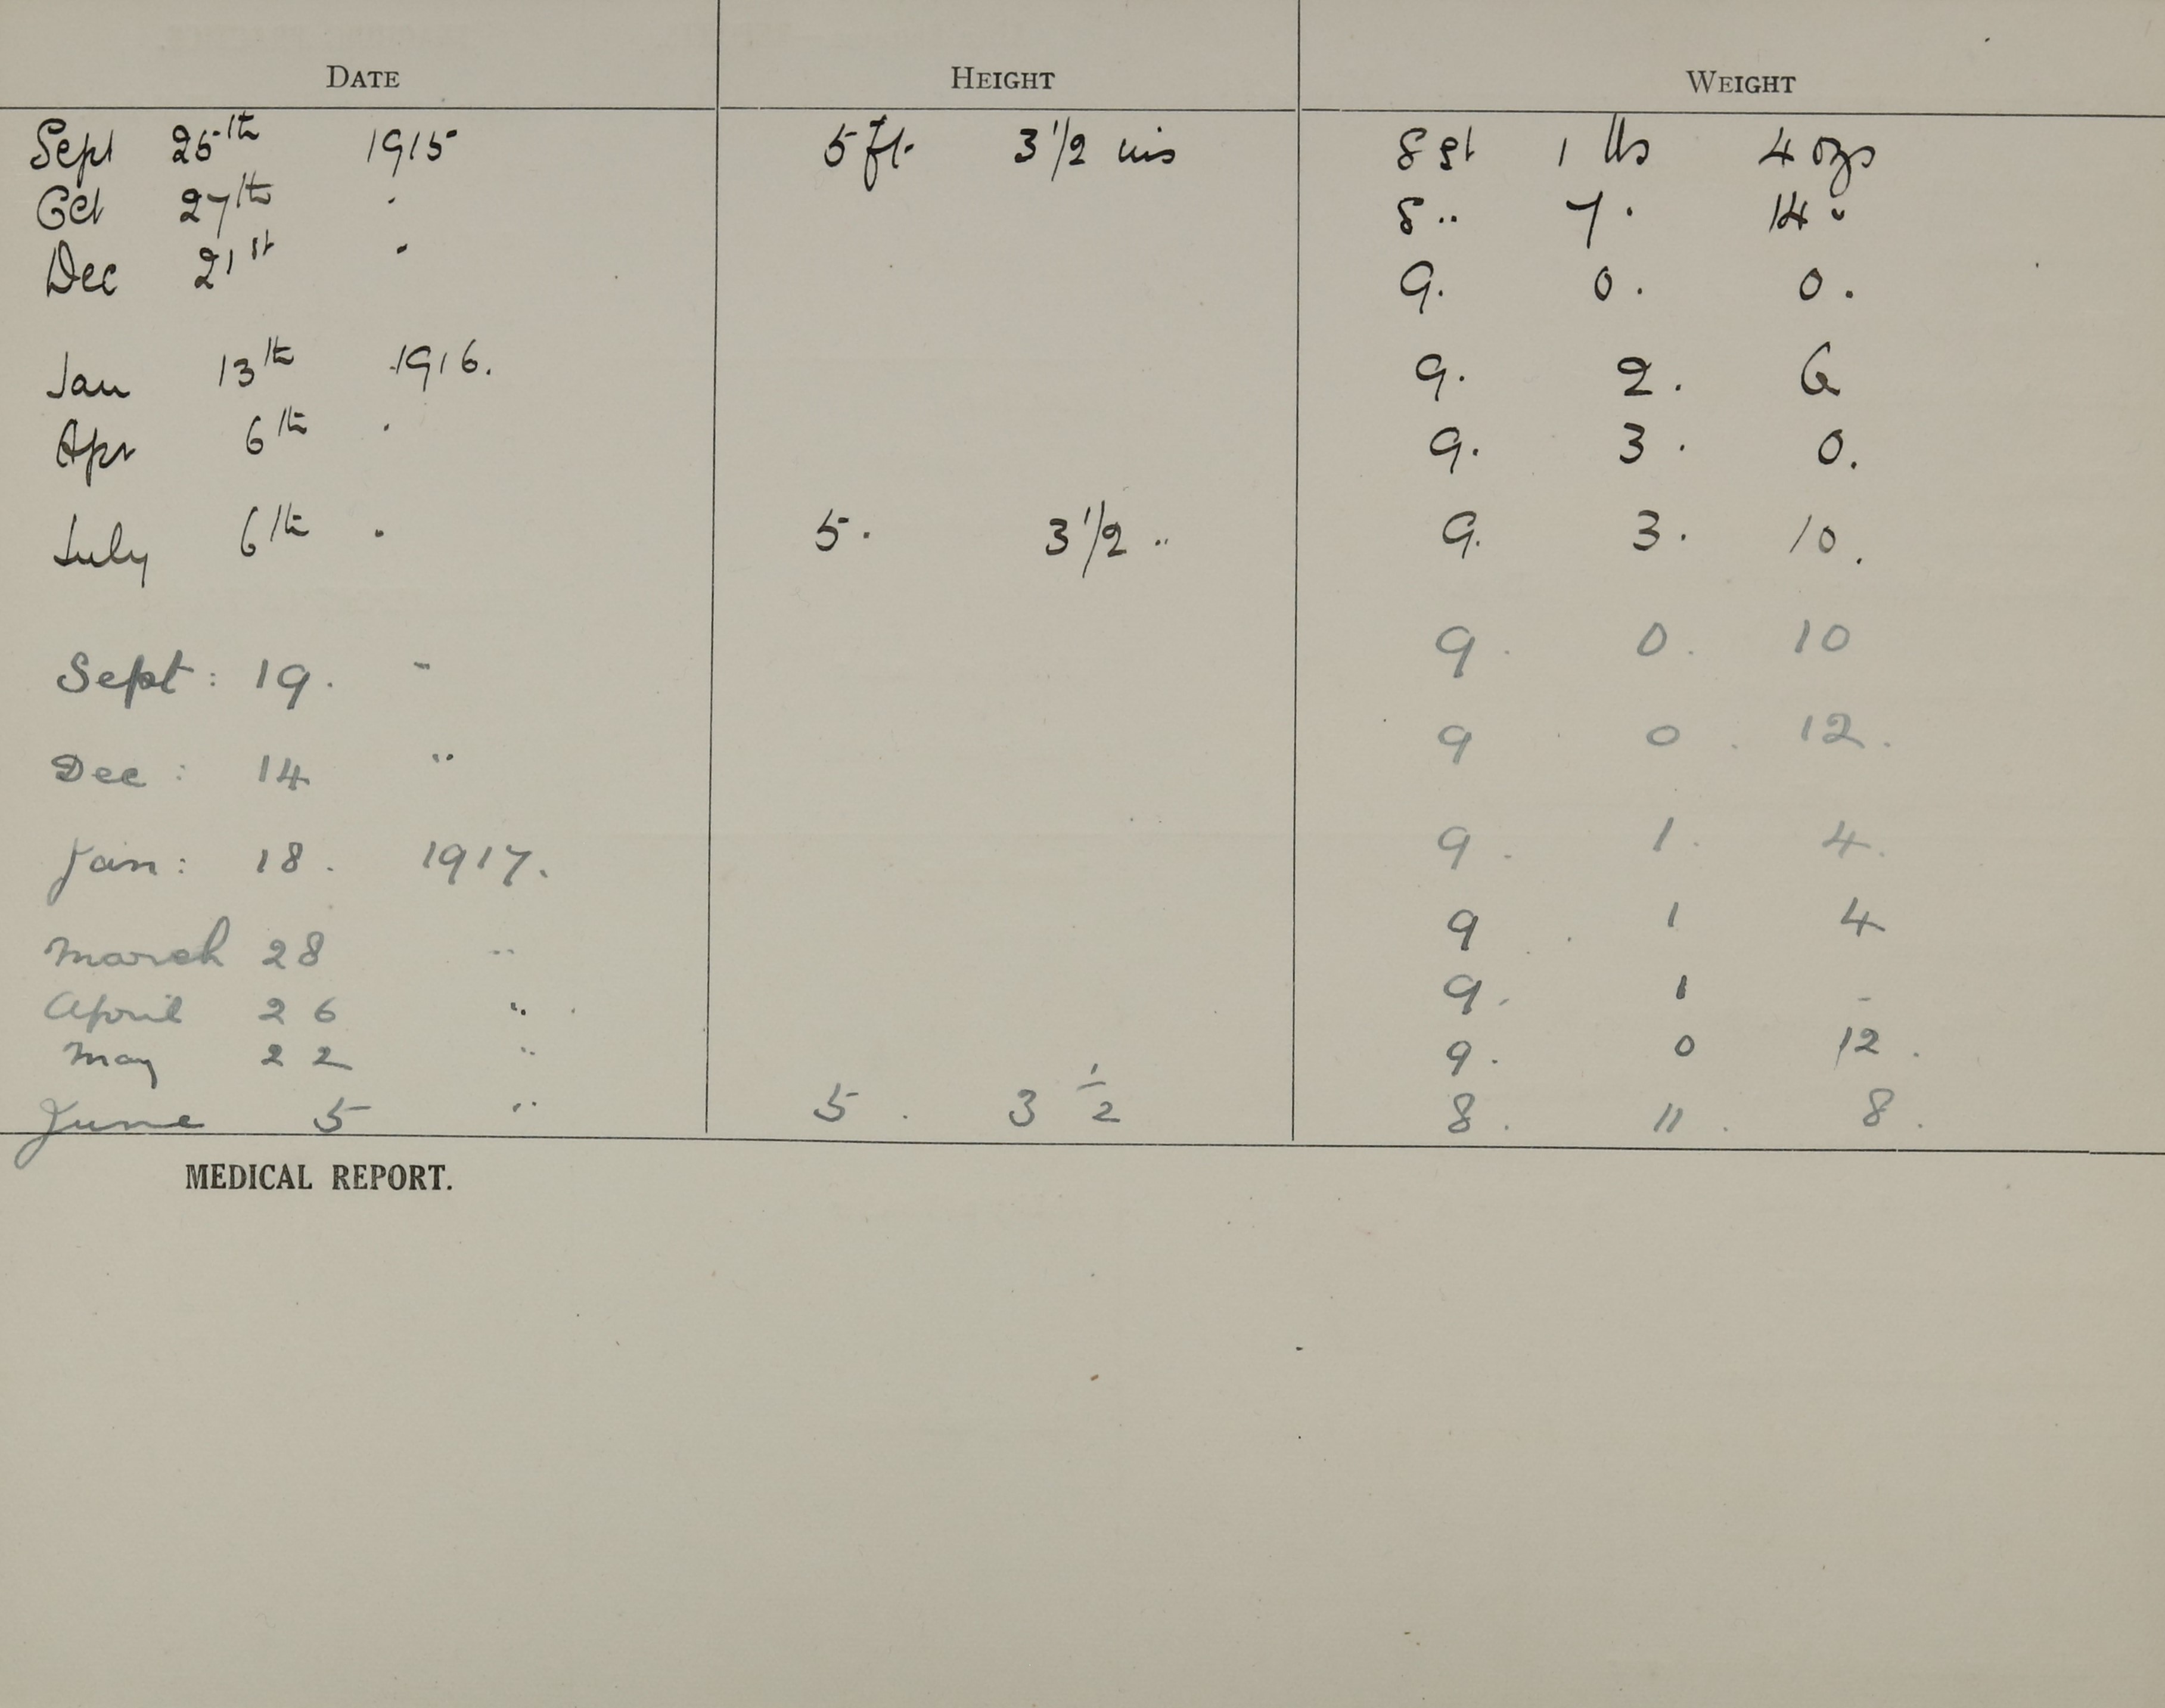 DATE HEIGHT WEIGHT
Sept 25th 1915 5 ft. 3 1/2 ins 8 st 1 lbs 4 ozs
Oct 27th " 8 " 7 . 14 "
Dec 21st " 9. 0. 0.
Jan 13th 1916. 9. 2. 6
Apr 6th " 9. 3. 0.
July 6th " 5. 3 1/2 " 9. 3. 10.
Sept: 19. " 9. 0. 10
Dec: 14 " 9 0. 12.
Jan: 18. 1917. 9. 1. 4.
March 28 " 9 . 1 4
April 26 " 9. 1 -
May 22 " 9. 0 12.
June 5 " 5. 3 1/2 8. 11. 8.
MEDICAL REPORT.